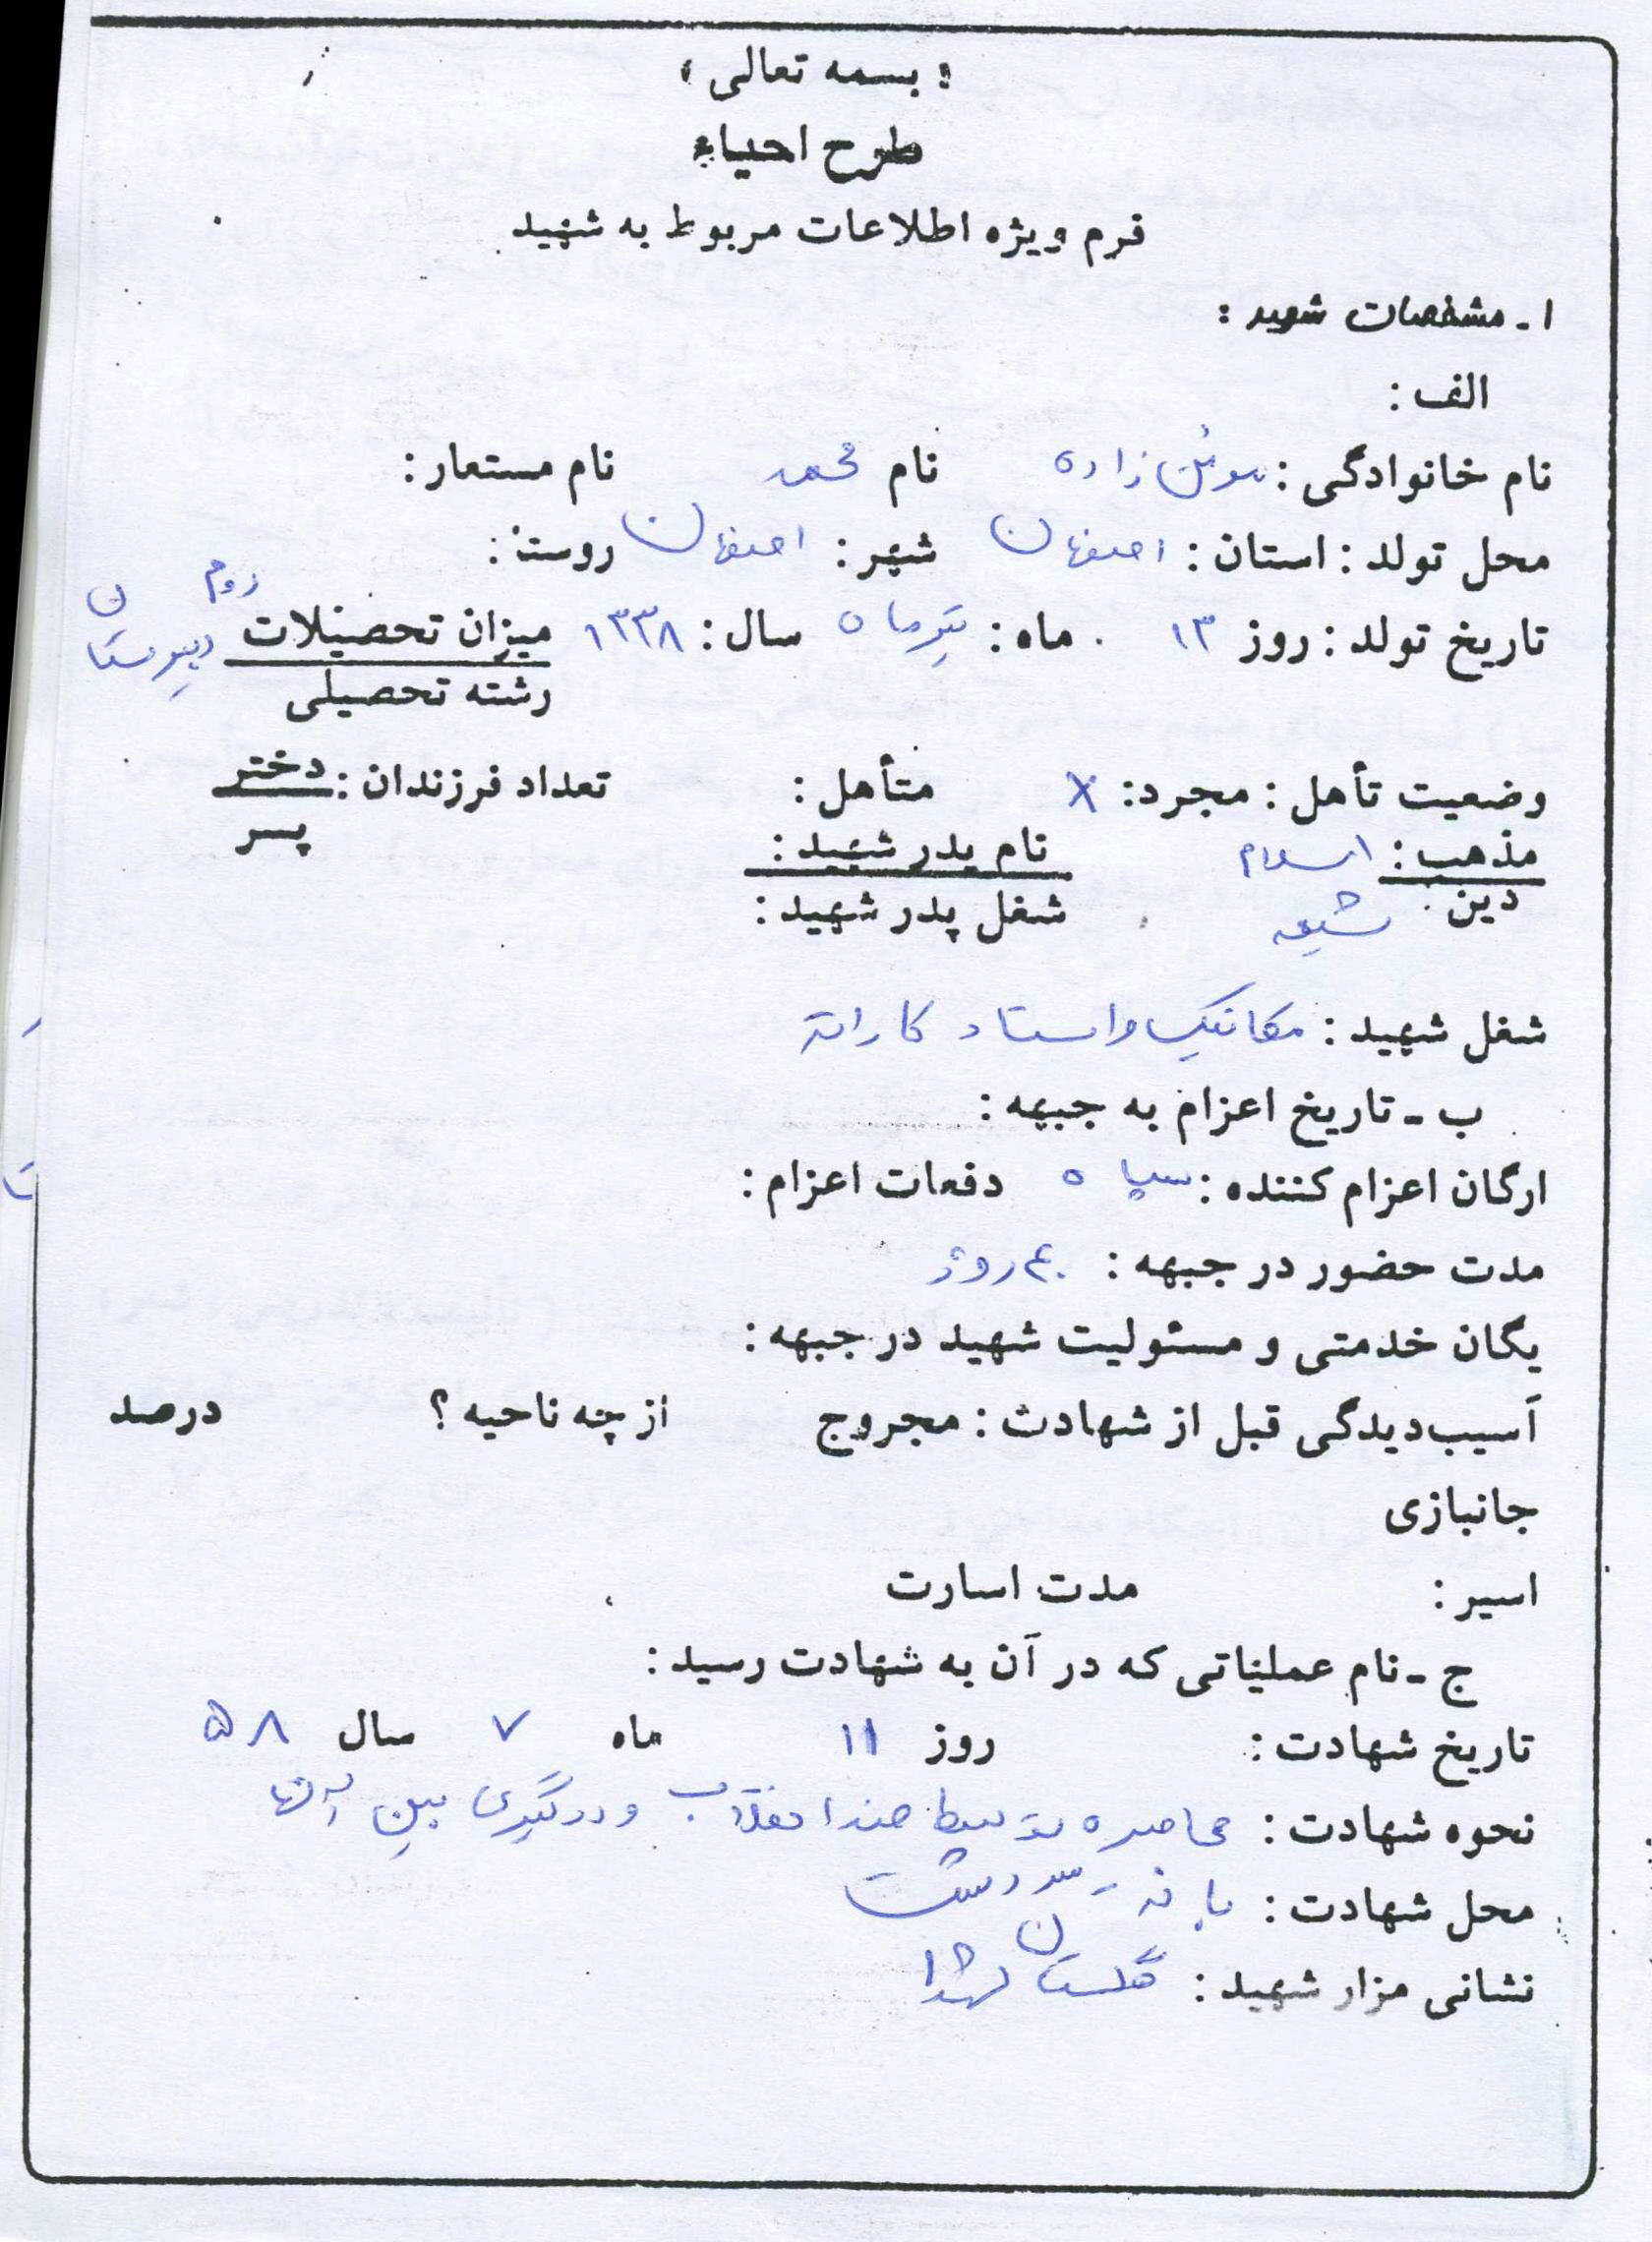 « بسمه تعالی »
طرح احیاء
فرم ویژه اطلاعات مربوط به شهید
۱ - مشخصات شهید :
الف :
نام خانوادگی : موئن زاده نام محمد نام مستعار :
محل تولد : استان : اصفهان شهر : اصفهان روستا :
تاریخ تولد : روز ۱۳ ماه : تیرماه سال : ۱۳۳۸ میزان تحصیلات دوم دبیرستان
رشته تحصیلی
وضعیت تأهل : مجرد : X متأهل : تعداد فرزندان : دختر
پسر
مذهب : اسلام نام پدر شهید :
دین : شیعه شغل پدر شهید :
شغل شهید : مکانیک و استاد کاراته
ب - تاریخ اعزام به جبهه :
ارگان اعزام کننده : سپاه دفعات اعزام :
مدت حضور در جبهه : ۴۰ روز
یگان خدمتی و مسئولیت شهید در جبهه :
آسیب‌دیدگی قبل از شهادت : مجروح از چه ناحیه ؟ درصد
جانبازی
اسیر : مدت اسارت
ج - نام عملیاتی که در آن به شهادت رسید :
تاریخ شهادت : روز ۱۱ ماه ۷ سال ۵۸
نحوه شهادت : محاصره توسط ضد انقلاب و درگیری بین آنها
محل شهادت : بانه - سردشت
نشانی مزار شهید : گلستان شهدا